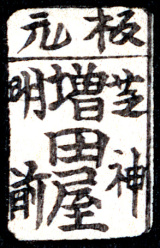 板元
芝神
増田屋
明前